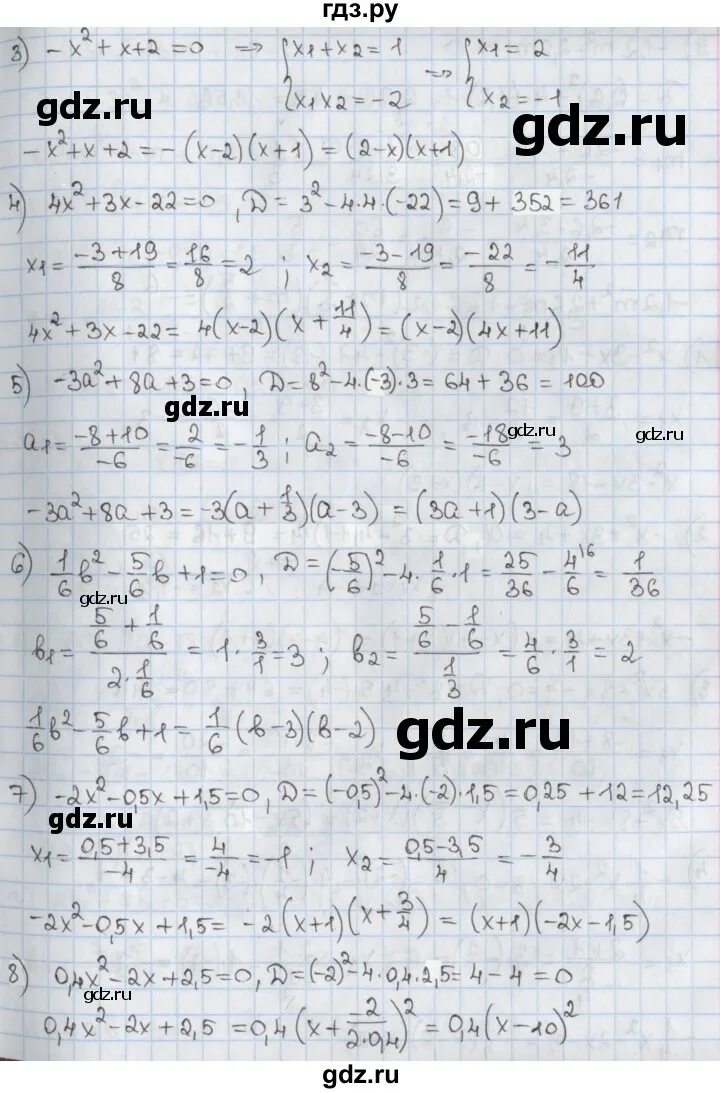 гдз.ру
3) -x² + x + 2 = 0 => {x1 + x2 = 1 => {x1 = 2
{x1x2 = -2 {x2 = -1
gdz.ru
gdz.ru
-x² + x + 2 = -(x-2)(x+1) = (2-x)(x+1)
4) 4x² + 3x - 22 = 0, D = 3² - 4·4·(-22) = 9 + 352 = 361
x1 = (-3+19)/8 = 16/8 = 2 ; x2 = (-3-19)/8 = -22/8 = -11/4
4x² + 3x - 22 = 4(x-2)(x + 11/4) = (x-2)(4x+11)
5) -3a² + 8a + 3 = 0, D = 8² - 4·(-3)·3 = 64 + 36 = 100
gdz.ru
a1 = (-8+10)/-6 = 2/-6 = -1/3 ; a2 = (-8-10)/-6 = -18/-6 = 3
gdz.ru
gdz.ru
-3a² + 8a + 3 = -3(a + 1/3)(a-3) = (3a+1)(3-a)
6) 1/6 b² - 5/6 b + 1 = 0, D = (-5/6)² - 4·1/6·1 = 25/36 - 4\16/6 = 1/36
gdz.ru
b1 = (5/6 + 1/6)/(2·1/6) = 1·3/1 = 3 ; b2 = (5/6 - 1/6)/(1/3) = 4/6·3/1 = 2
1/6 b² - 5/6 b + 1 = 1/6 (b-3)(b-2)
gdz.ru
7) -2x² - 0,5x + 1,5 = 0, D = (-0,5)² - 4·(-2)·1,5 = 0,25 + 12 = 12,25
gdz.ru
x1 = (0,5+3,5)/-4 = 4/-4 = -1 ; x2 = (0,5-3,5)/4 = -3/4
-2x² - 0,5x + 1,5 = -2(x+1)(x + 3/4) = (x+1)(-2x-1,5)
8) 0,4x² - 2x + 2,5 = 0, D = (-2)² - 4·0,4·2,5 = 4 - 4 = 0
gdz.ru
0,4x² - 2x + 2,5 = 0,4(x + -2/(2·0,4))² = 0,4(x-10)²
gdz.ru